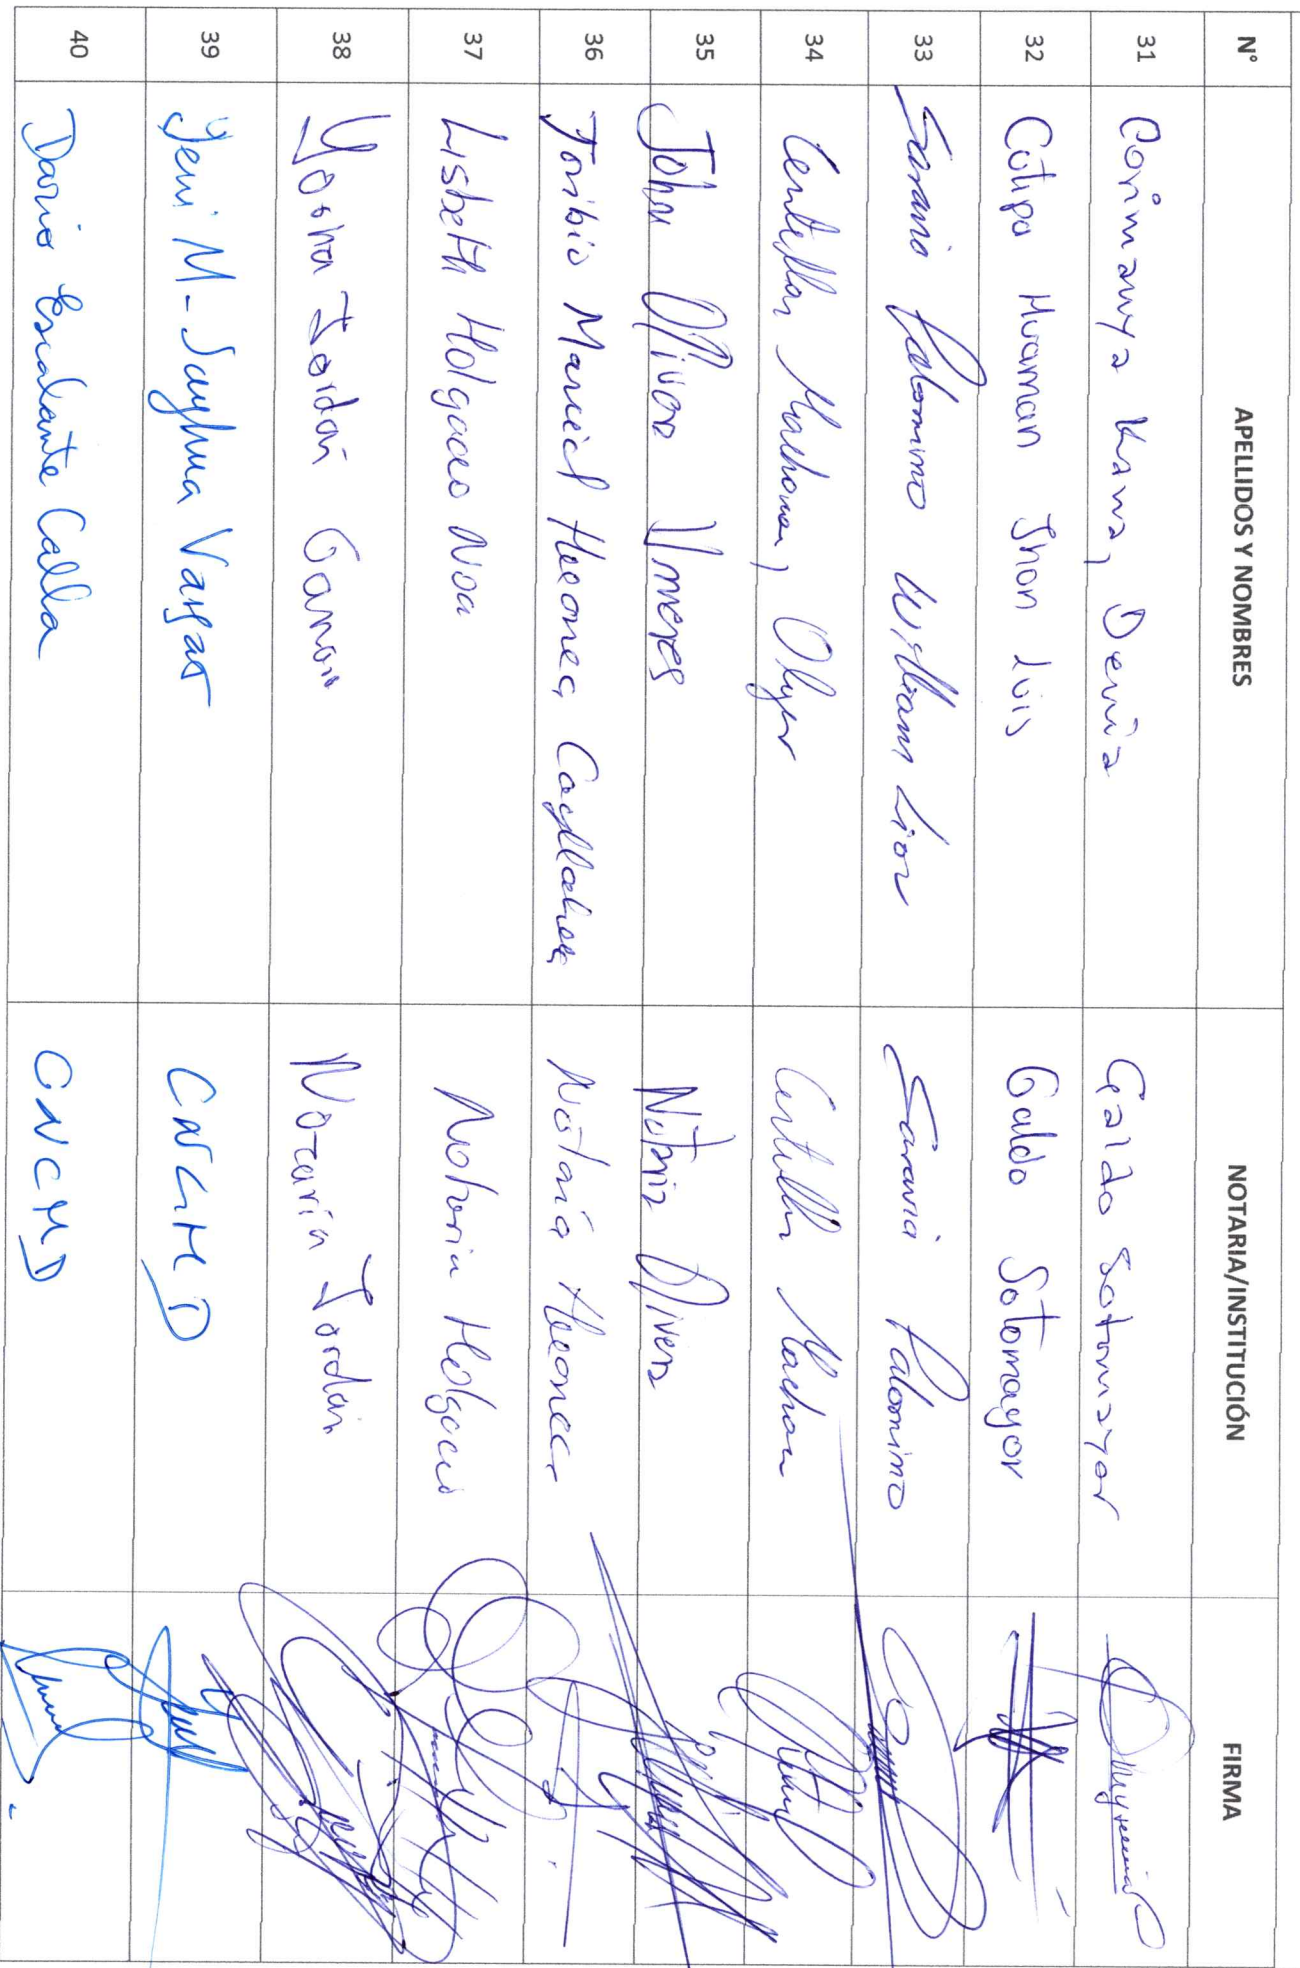 N° APELLIDOS Y NOMBRES NOTARIA/INSTITUCIÓN FIRMA
31 Corimanya Kana, Denia Galdo Sotomayor
32 Cutipa Huaman Jhon Luis Galdo Sotomayor
33 Saravia Palomino William Lior Saravia Palomino
34 Centellas Machaca, Olger Centellas Machaca
35 John Olivera Notaria Olivera
36 Toribio Marcial Hecanea Ccallahua Notaría Hecanea
37 Lisbeth Holgado Noa Notaria Holgado
38 Jordán Notaría Jordán
39 Yeni M. Sayhua Vargas CNCMD
40 Dario Escalante Calla CNCMD